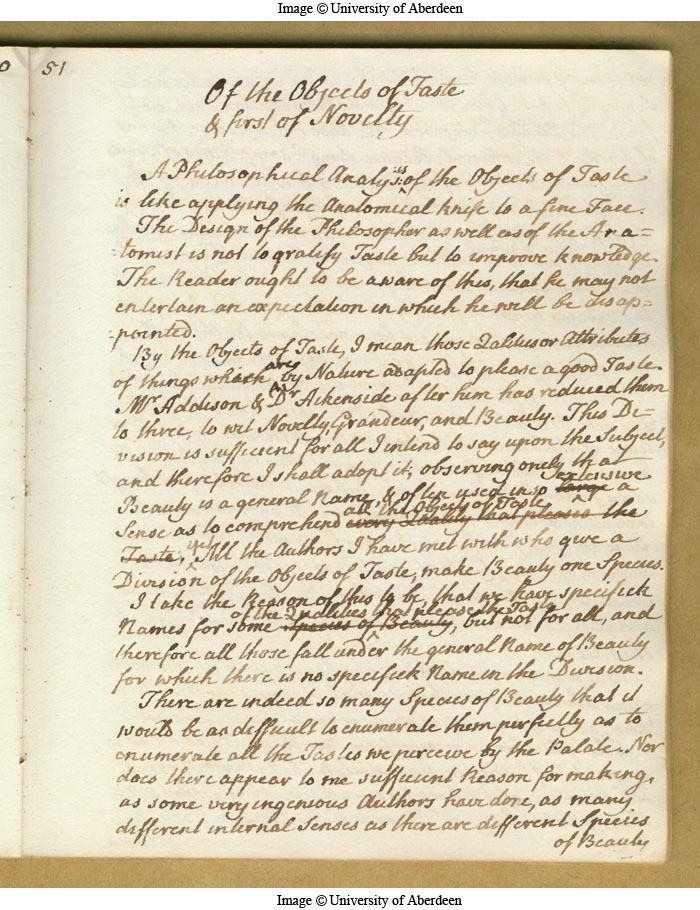 Image © University of Aberdeen
0 51
Of the Objects of Taste
& first of Novelty
A Philosophical Analysis of the Objects of Taste
is like applying the Anatomical knife to a fine Face.
The Design of the Philosopher as well as of the Ana=
=tomist is not to gratify Taste but to improve knowledge.
The Reader ought to be aware of this, that he may not
entertain an expectation in which he will be disap=
=pointed.
By the Objects of Taste, I mean those Qalities or Attributes
are
of things which by Nature adapted to please a good Taste.
Mr Addison & Dr Ackenside after him has reduced them
to three, to wit Novelty, Grandeur, and Beauty. This Di=
vision is sufficient for all I intend to say upon the Subject,
and therefore I shall adopt it; observing onely that
extensive
Beauty is a general Name, & often used in so large a
all the Objects of Taste
Sense as to comprehend every Quality that pleases the
Taste, yet All the Authors I have met with who give a
Division of the Objects of Taste, make Beauty one Species.
I take the Reason of this to be, that we have specifick
of the Qualities that please the Taste
Names for some Species of Beauty, but not for all, and
therefore all those fall under the general Name of Beauty
for which there is no specifick Name in the Division.
There are indeed so many Species of Beauty that it
would be as difficult to enumerate them perfectly as to
enumerate all the Tastes we perceive by the Palate. Nor
does there appear to me sufficient Reason for making,
as some very ingenious Authors have done, as many
different internal Senses as there are different Species
of Beauty
Image © University of Aberdeen